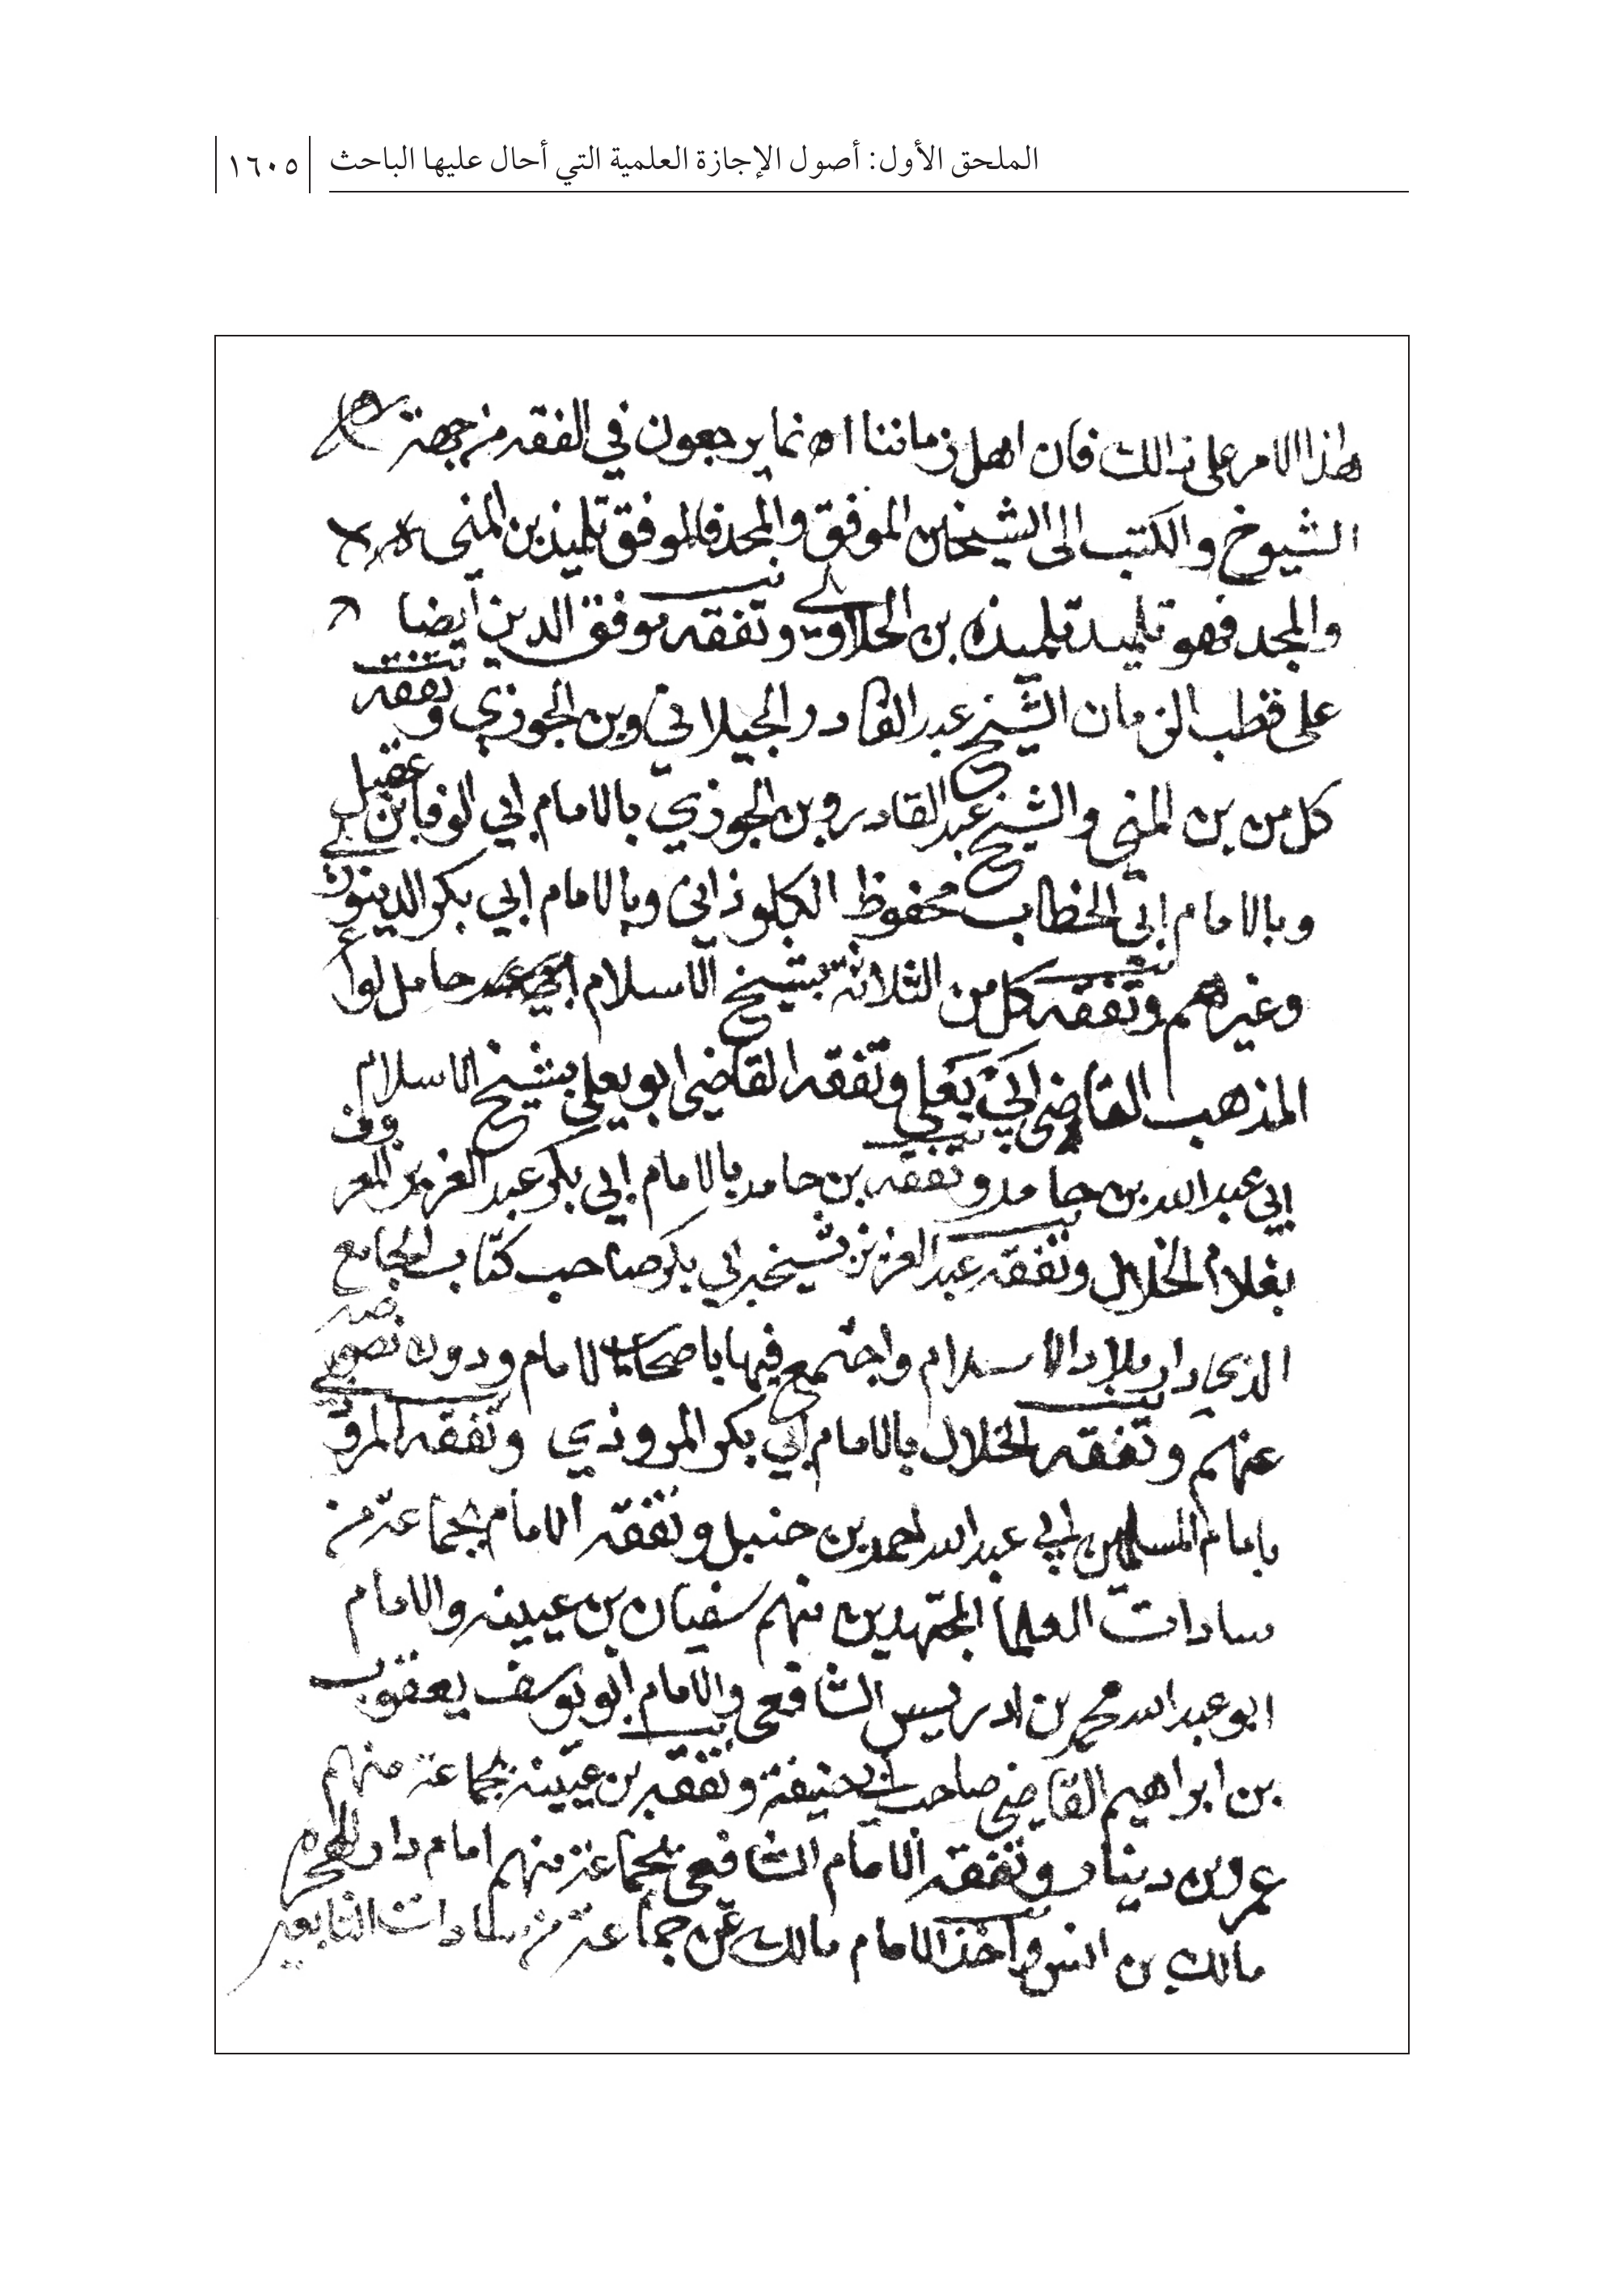 الملحق الأول: أصول الإجازة العلمية التي أحال عليها الباحث
١٦٠٥
هذا الامر على ذالك فان اهل زماننا انما يرجعون في الفقه من جهة
الشيوخ والكتب الى الشيخين الموفق والمجد فالموفق تلميذ بن المنى
والمجد فهو تلميذ تلميذه بن الحلاوي وتفقه موفق الدين ايضا
على قطب الزمان الشيخ عبد القادر الجيلاني وبن الجوزي وتفقه
كل من بن المنى والشيخ عبد القادر وبن الجوزي بالامام ابي الوفا بن عقيل
وبالامام ابي الخطاب محفوظ الكلوذاني وبالامام ابي بكر الدينوري
وغيرهم وتفقه كل من الثلاثة بشيخ الاسلام حامل لوا
المذهب القاضي ابي يعلى وتفقه القاضي ابو يعلى بشيخ الاسلام
ابي عبد الله بن حامد وتفقه بن حامد بالامام ابي بكر عبد العزيز المعروف
بغلام الخلال وتفقه عبد العزيز بشيخه ابي بكر صاحب كتاب الجامع
الذي دار بلاد الاسلام واجتمع فيها باصحاب الامام ودون نصوصه
عنهم وتفقه الخلال بالامام ابي بكر المروذي وتفقه المروذي
بامام المسلمين ابي عبد الله احمد بن حنبل وتفقه الامام بجماعة من
سادات العلما المجتهدين منهم سفيان بن عيينه والامام
ابو عبد الله محمد بن ادريس الشافعي والامام ابو يوسف يعقوب
بن ابراهيم القاضي صاحب ابي حنيفة وتفقه بن عيينه بجماعة منهم
عمرو بن دينار وتفقه الامام الشافعي بجماعة منهم امام دار الهجرة
مالك بن انس واخذ الامام مالك عن جماعة من سادات التابعين